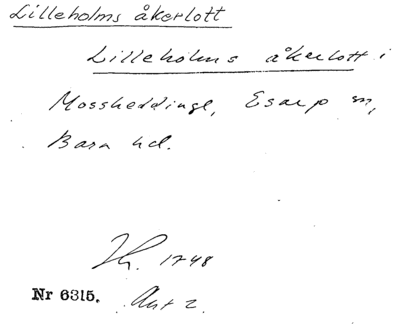 Lilleholms åkerlott
Lilleholms åkerlott i
Mossheddinge, Esarp sn,
Bara hd.
1748
Nr 6315. Akt 2.